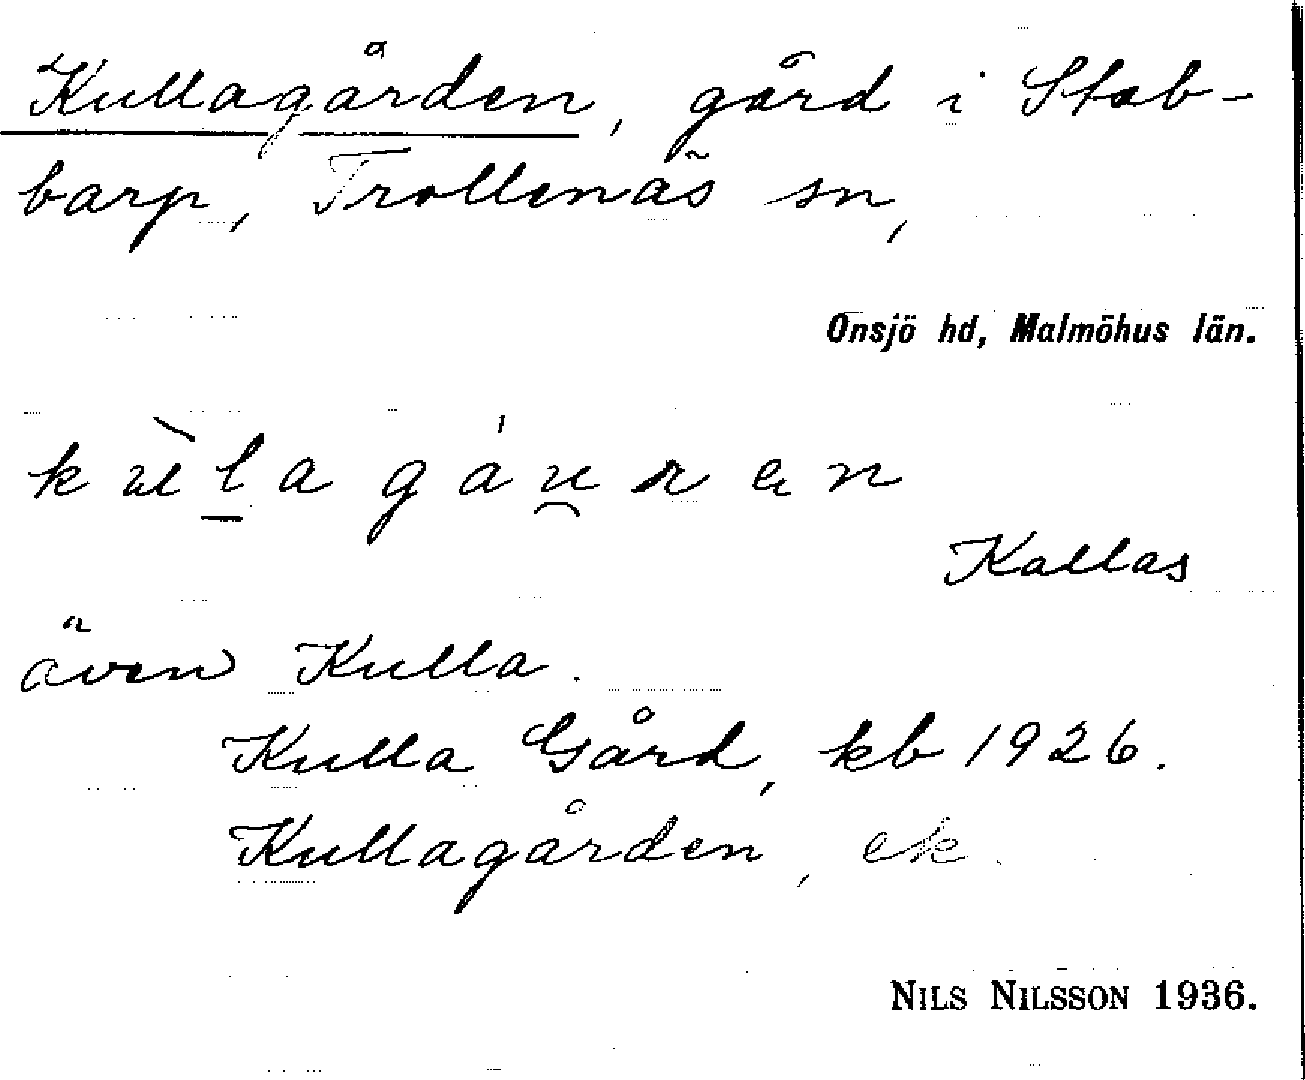 Kullagården, gård i Stab-
barp, Trollenäs sn,
Onsjö hd, Malmöhus län.
kùl̲agáu̯ʀɘn
Kallas
även Kulla.
Kulla Gård, kb 1926.
Kullagården, ek.
NILS NILSSON 1936.